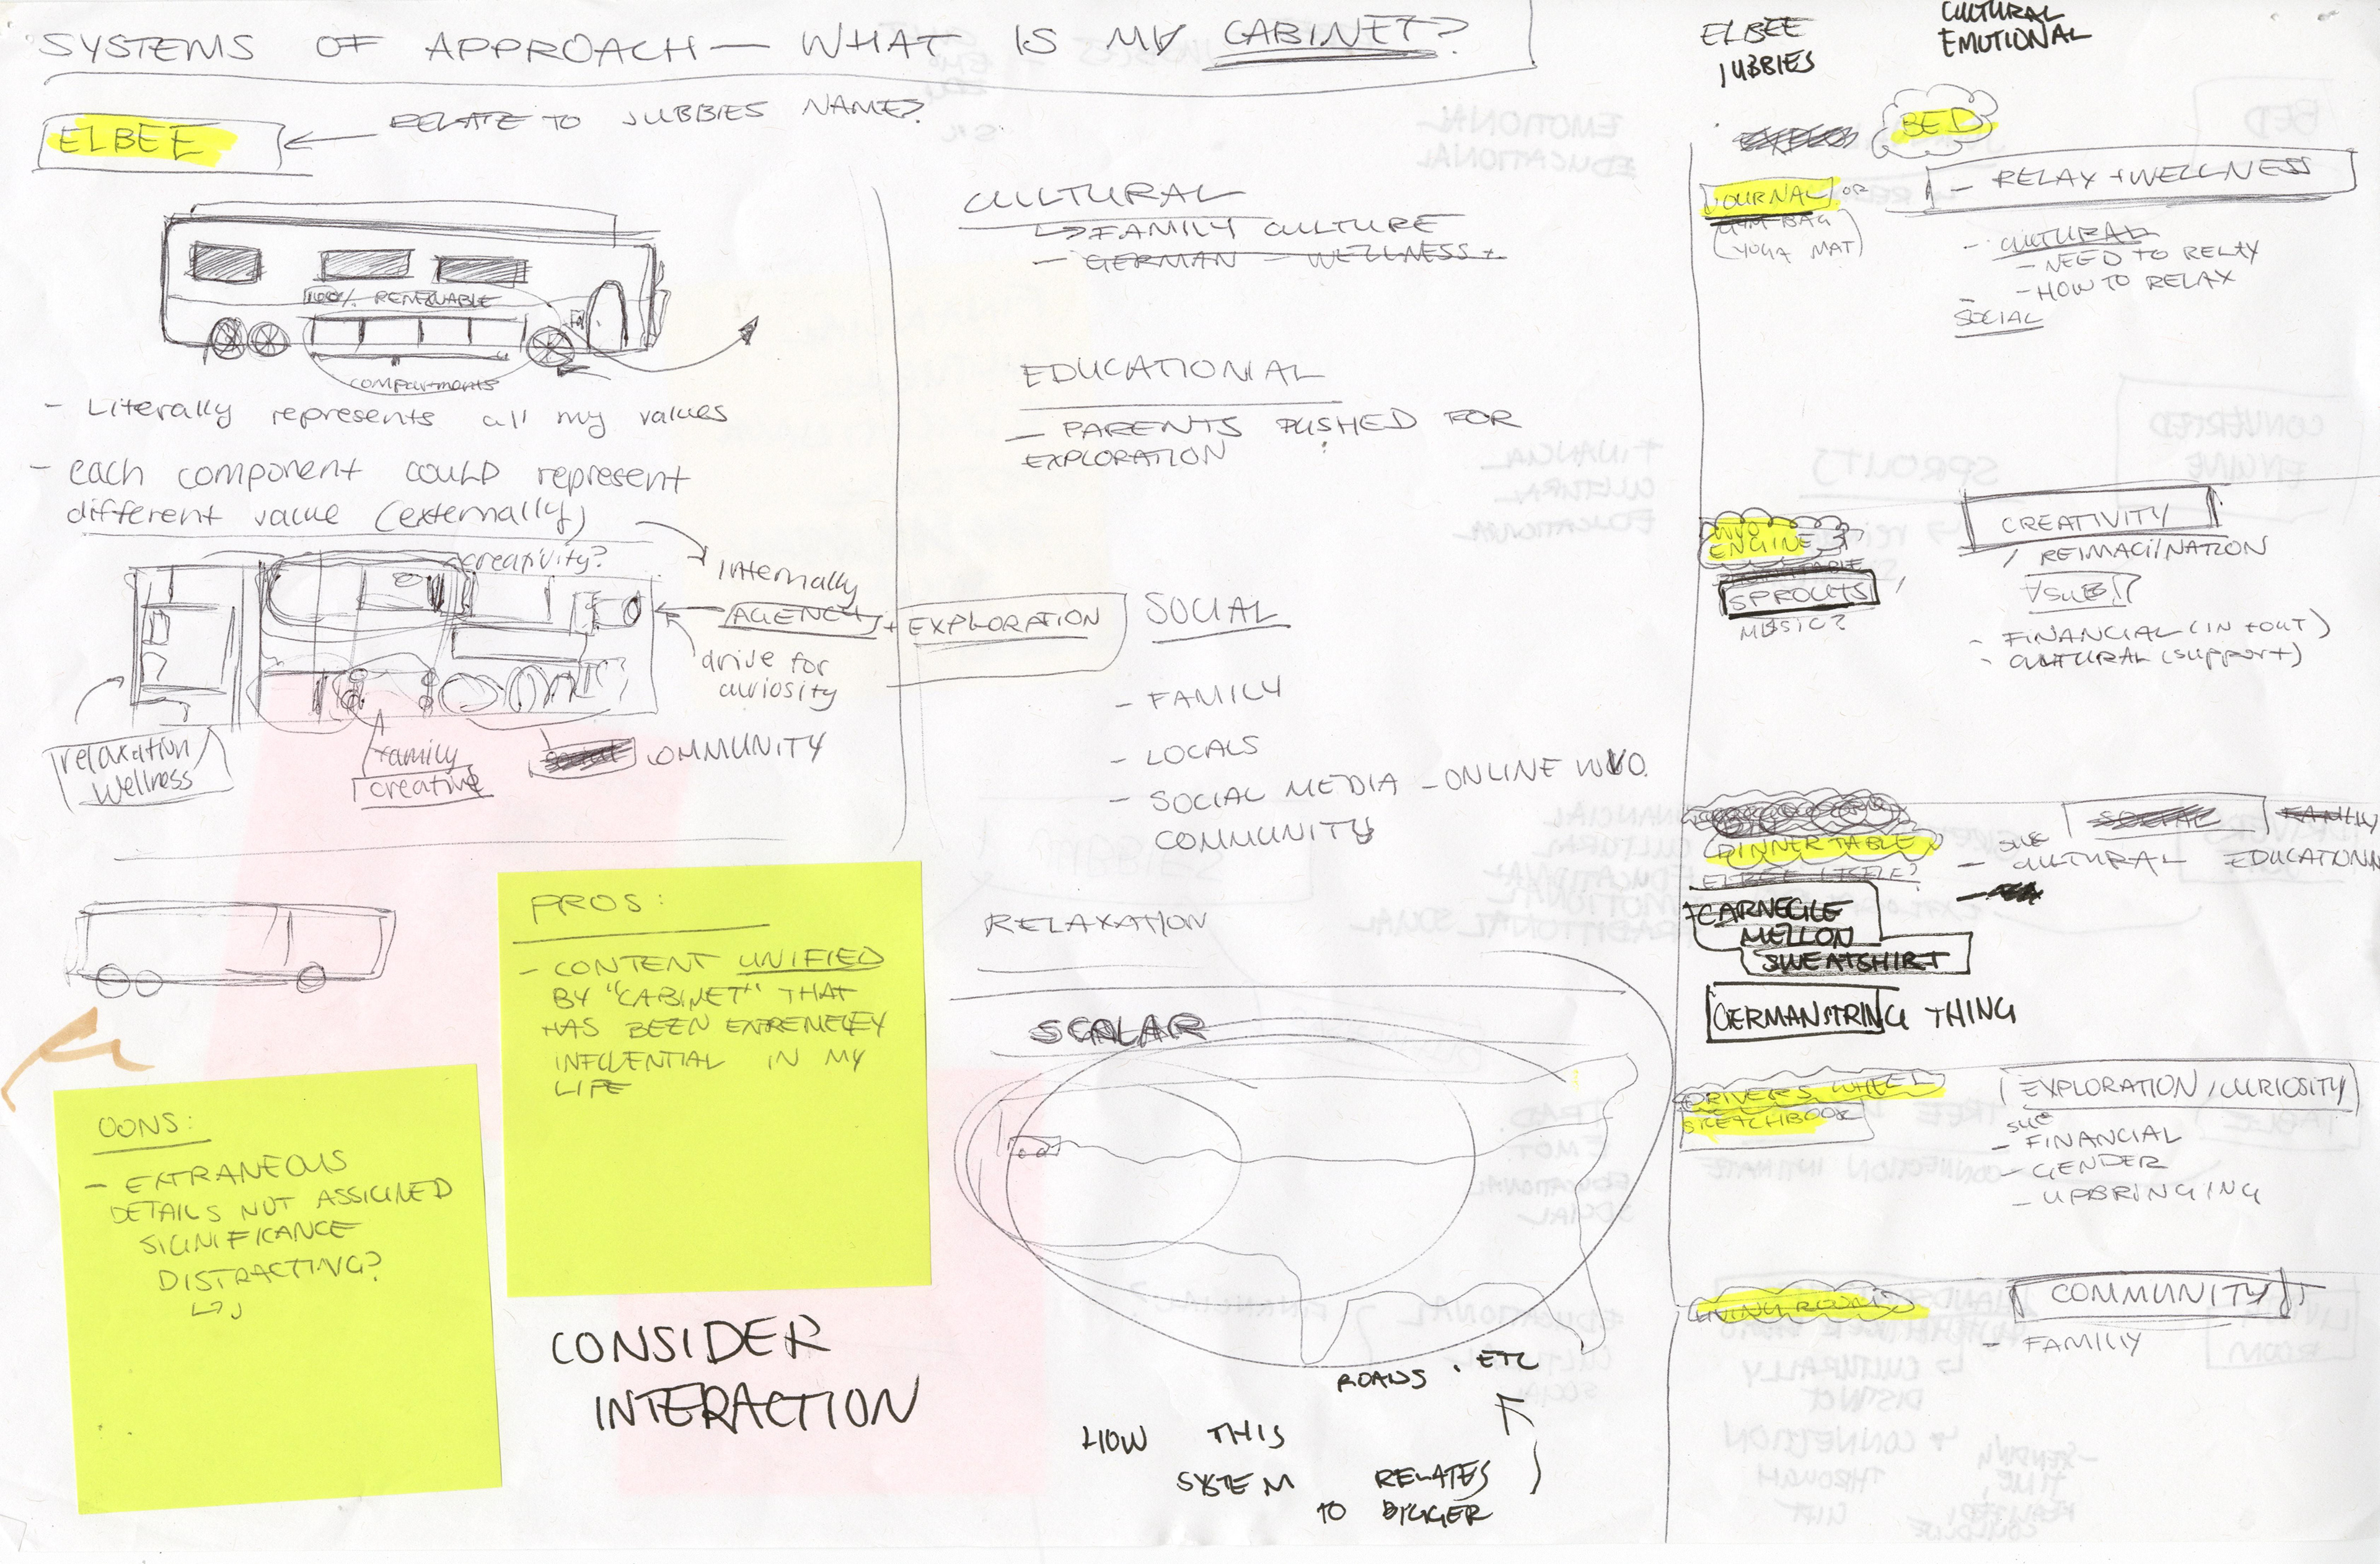 SYSTEMS OF APPROACH — WHAT IS MY CABINET?
ELBEE
RELATE TO JUBBIES NAME?
100% RENEWABLE
compartments
- Literally represents all my values
- each component could represent
different value (externally)
creativity?
internally
AGENCY + EXPLORATION
drive for
curiosity
relaxation/
wellness
family
creative
COMMUNITY
CULTURAL
↳ FAMILY CULTURE
- GERMAN - WELLNESS +
EDUCATIONAL
- PARENTS PUSHED FOR
EXPLORATION
SOCIAL
- FAMILY
- LOCALS
- SOCIAL MEDIA - ONLINE WVO
COMMUNITY
RELAXATION
SCALAR
ROADS, ETC
HOW THIS
SYSTEM RELATES
TO BIGGER
PROS:
- CONTENT UNIFIED
BY "CABINET" THAT
HAS BEEN EXTREMELEY
INFLUENTIAL IN MY
LIFE
CONS:
- EXTRANEOUS
DETAILS NOT ASSIGNED
SIGNIFICANCE
DISTRACTING?
CONSIDER
INTERACTION
ELBEE
JUBBIES
CULTURAL
EMOTIONAL
BED
JOURNAL OR
GYM BAG
(YOGA MAT)
- RELAX + WELLNESS
- CULTURAL
- NEED TO RELAX
- HOW TO RELAX
SOCIAL
WVO
ENGINE
SPROUTS
MUSIC?
CREATIVITY
/ REIMAGINATION
SUB
- FINANCIAL (IN + OUT)
- CULTURAL (support)
DINNER TABLE
ELBEE ITSELF?
CARNEGIE
MELLON
SWEATSHIRT
GERMAN STRING THING
SOCIAL
FAMILY
SUB
- CULTURAL EDUCATIONAL
DRIVERS WHEEL
SKETCHBOOK
EXPLORATION / CURIOSITY
SUB
- FINANCIAL
- GENDER
- UPBRINGING
LIVING ROOM
COMMUNITY
- FAMILIY